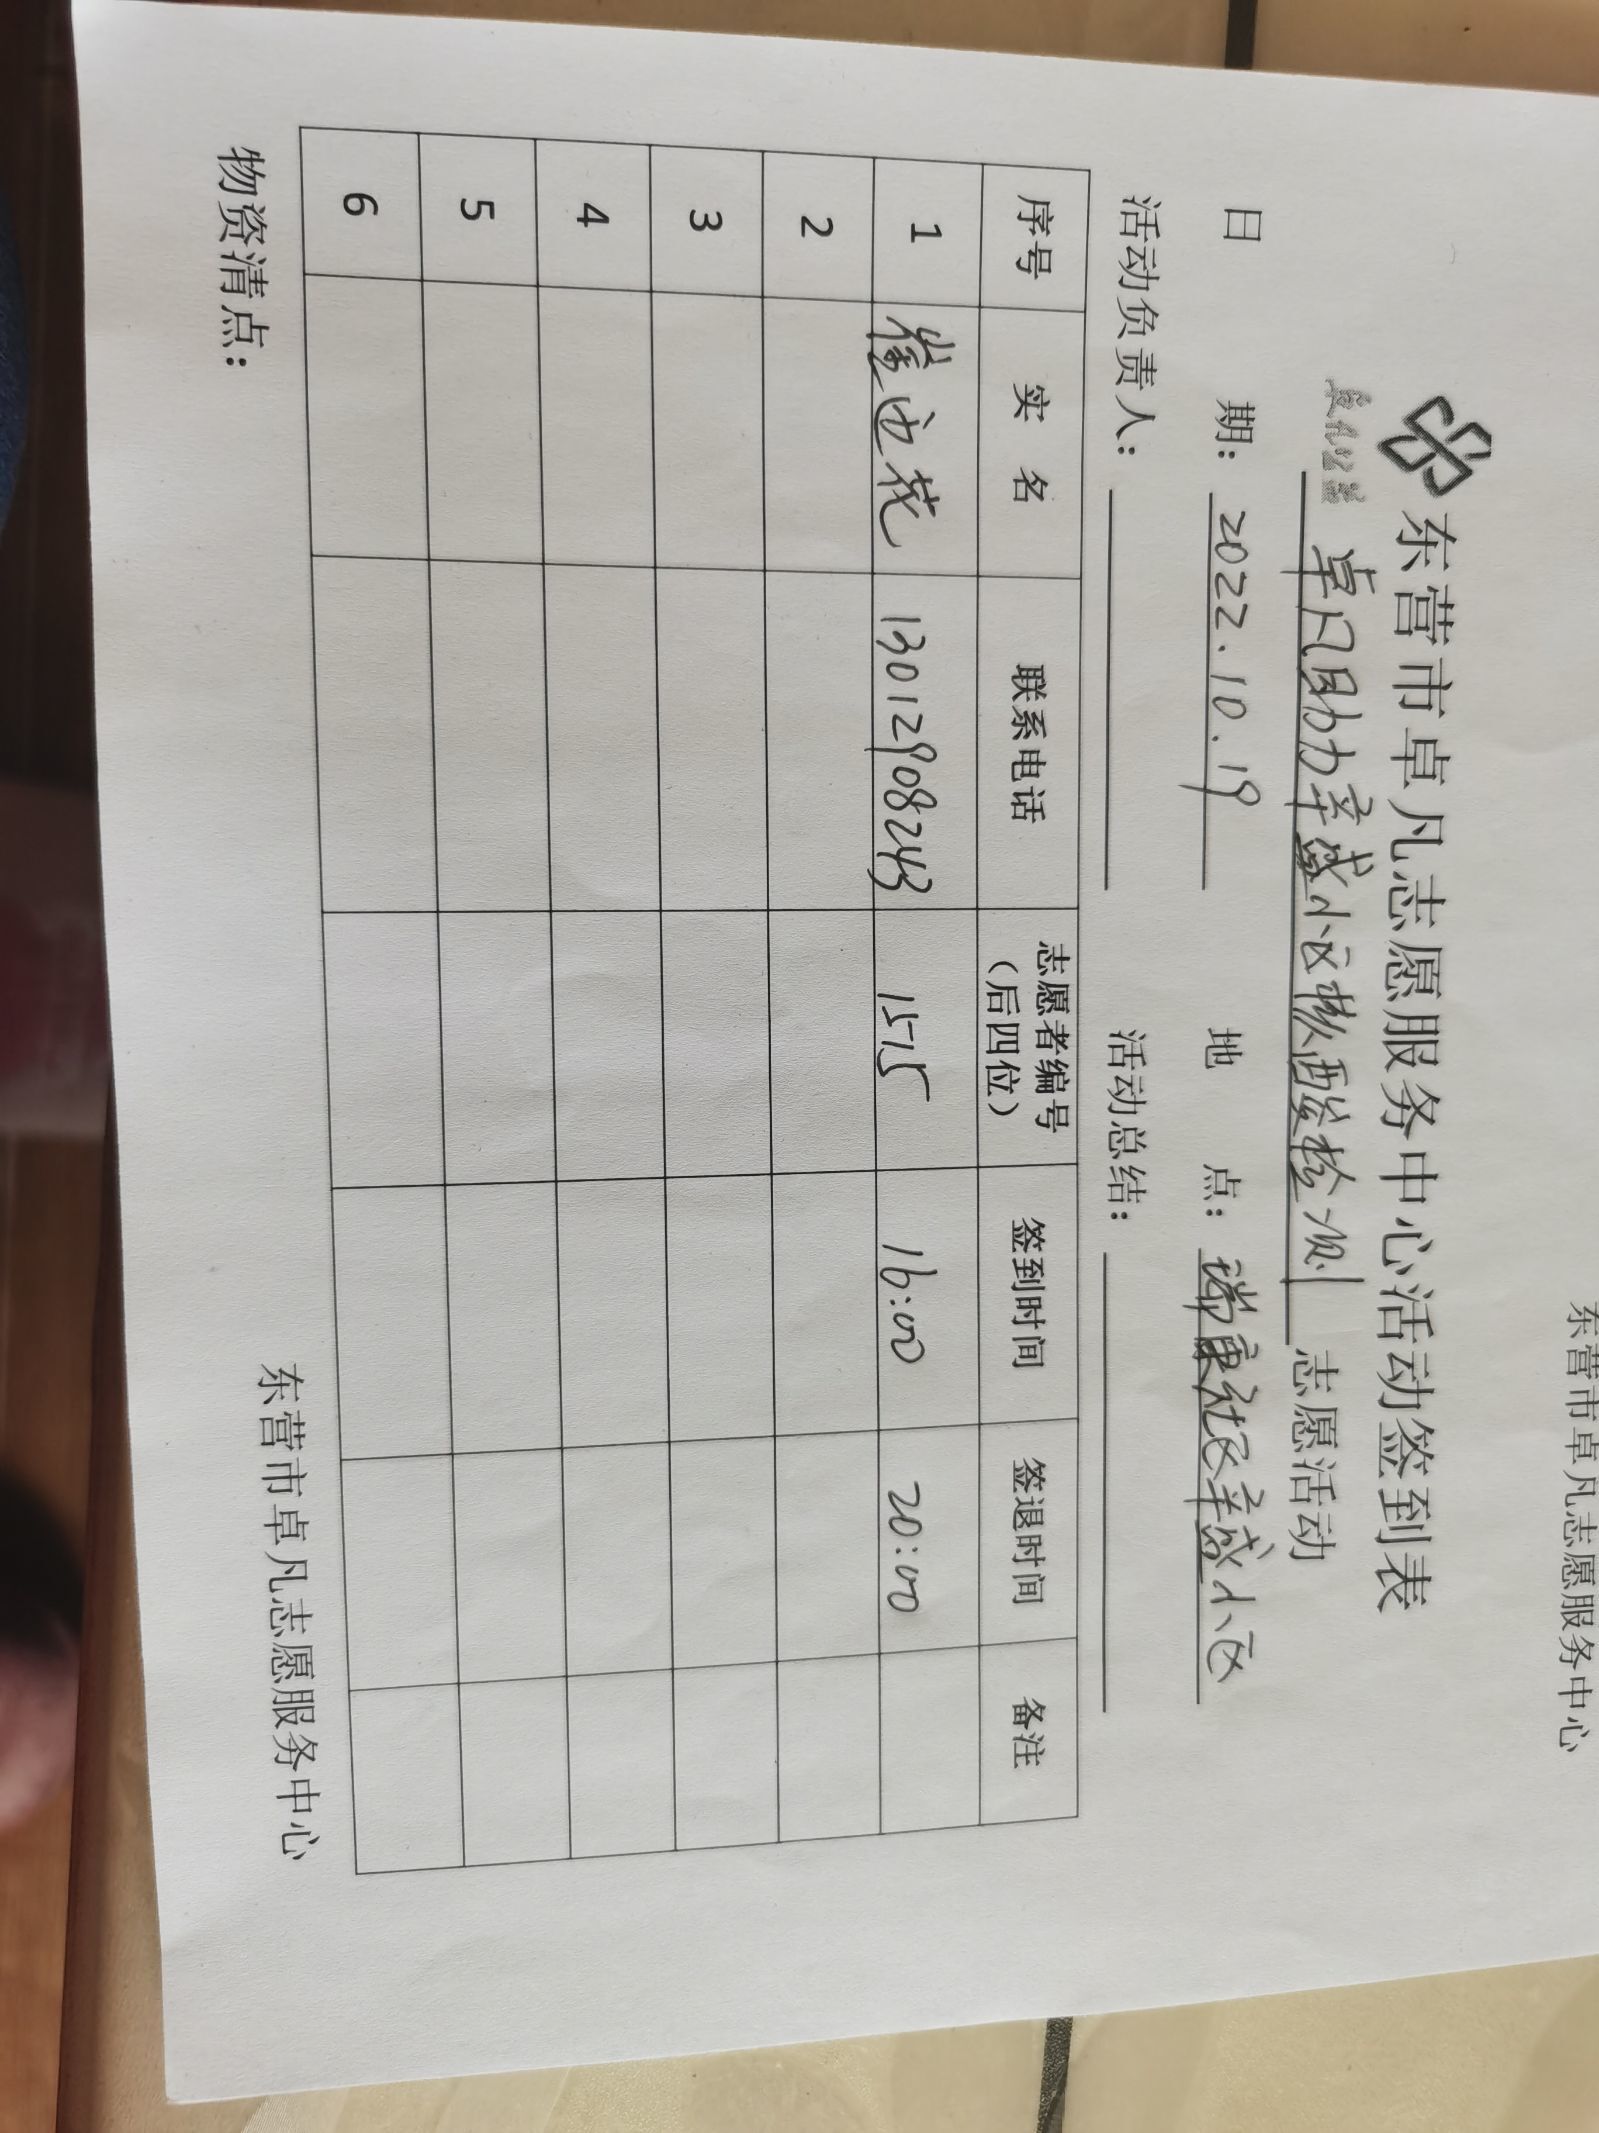 东营市卓凡志愿服务中心
东营市卓凡志愿服务中心活动签到表
卓凡助力辛盛小区核酸检测 志愿活动
日 期：2022.10.19 地 点：瑞康社区辛盛小区
活动负责人： 活动总结：
序号 实 名 联系电话 志愿者编号（后四位） 签到时间 签退时间 备注
1 崔迎花 13012908243 1515 16:00 20:00
2
3
4
5
6
物资清点：
东营市卓凡志愿服务中心